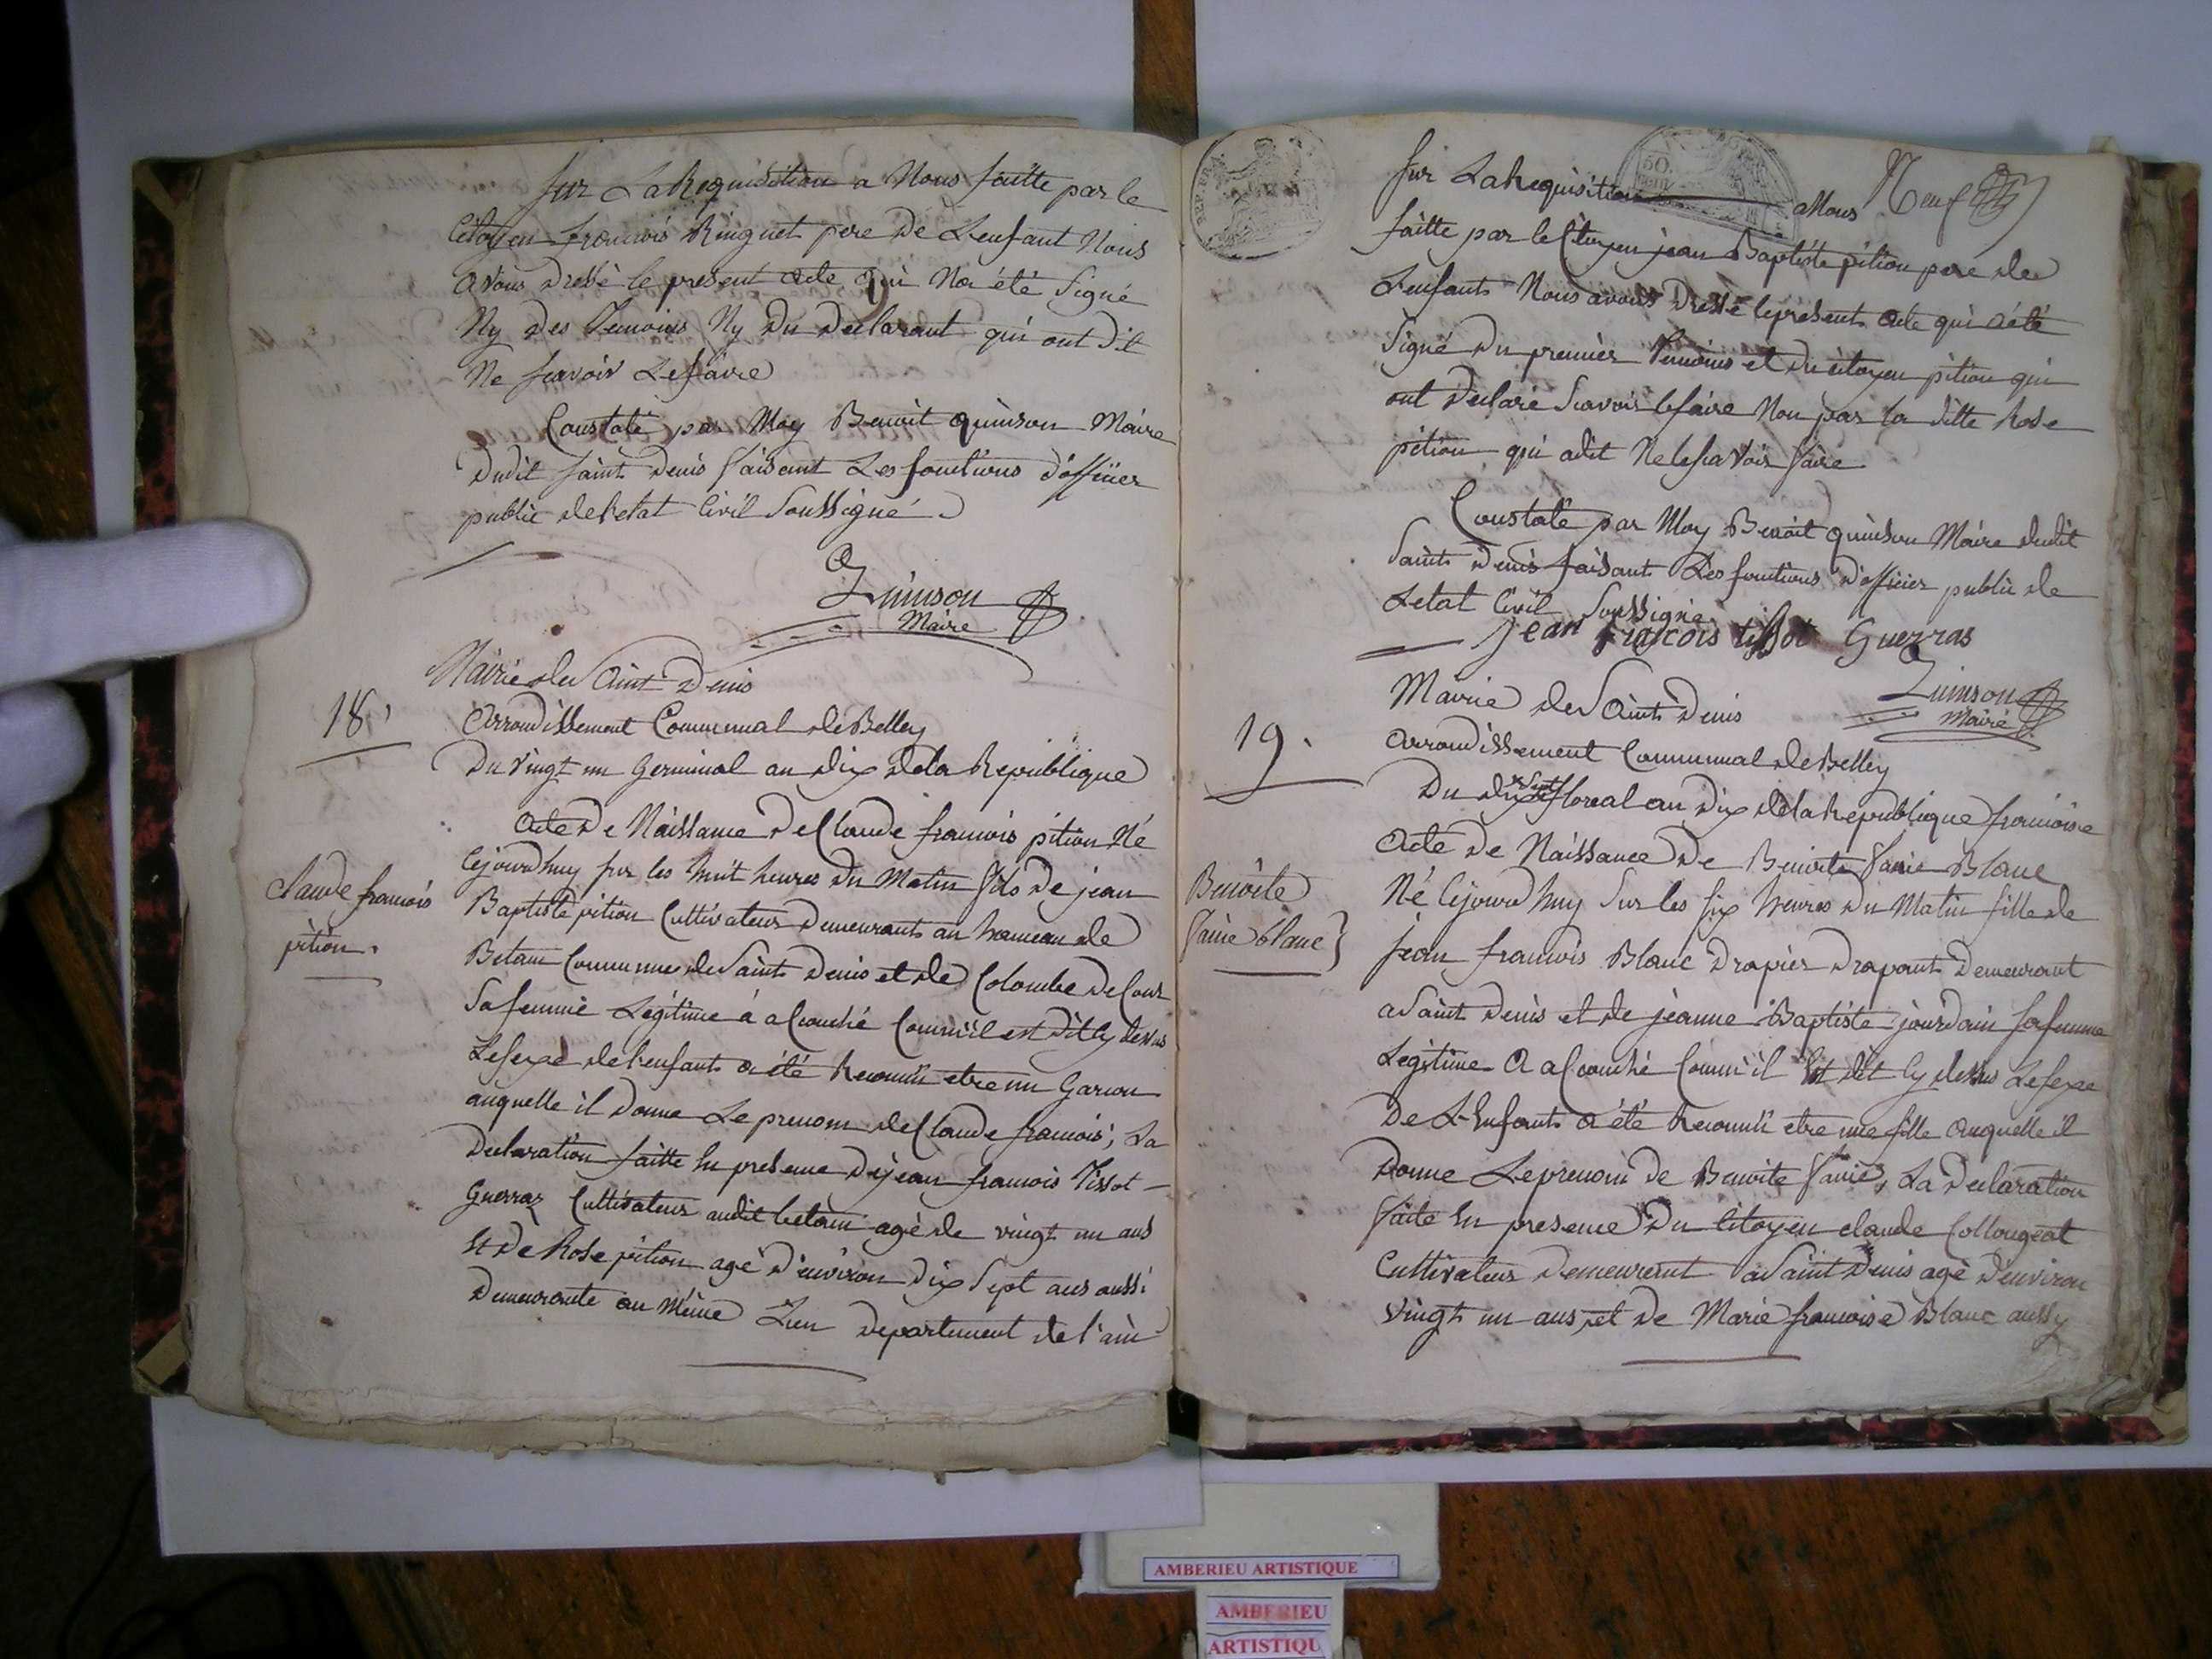 Sur La Requisition a Nous faitte par le
Citoyen francois Ringuet pere de L'enfant Nous
avons dressé le present acte qui Na été Signé
Ny des Temoins Ny du Declarant qui ont dit
Ne scavoir Le faire
Constaté par Moy Benoit quinson Maire
dudit saint denis faisant Les fonctions d'officier
public de l'etat Civil Soussigné
Quinson
Maire
Mairie de Saint Denis
18
Arrondissement Communal de Belley
Du vingt un Germinal an dix de la Republique
Acte de Naissance de Claude francois pition Né
Cejourdhuy sur les huit heures du Matin fils de jean
claude francois
pition.
Baptiste pition Cultivateur demeurant au hameau de
Betan Commune de Saint Denis et de Colombe
Sa femme Legitime à acouché Comm'il est dit Cy dessus
Le sexe de l'enfant a été Reconnu etre un Garcon
auquelle il donne Le prenom de Claude francois; La
Declaration faitte En presence de jean francois Tissot
Guerraz Cultivateur audit betan agé de vingt un ans
Et de Rose pition agé d'environ dix Sept ans aussi
demeurante au même Lieu departement de l'ain
Neuf
REP. FRA.
50.
Sur La Requisition a Nous
faitte par le Citoyen jean Baptiste pition pere de
L'enfant Nous avons dressé le present acte qui a été
Signé du premier Temoins et du citoyen pition qui
ont declaré Scavoir le faire Non pas la ditte Rose
pition qui a dit Ne le scavoir faire
Constaté par Moy Benoit quinson Maire dudit
Saint Denis faisant Les fonctions d'officier public de
L'etat Civil Soussigné
jean francois tissot Guerras
Quinson
Maire
Mairie de Saint Denis
19.
Arrondissement Communal de Belley
Du dix sept floreal an dix de la Republique francoise
Acte de Naissance de Benoite Blanc
Benoite
blanc
Né Cejourdhuy Sur les six heures du Matin fille de
jean francois Blanc drapier drapant demeurant
a Saint Denis et de jeanne Baptiste jourdain sa femme
Legitime a acouché Comm'il Est dit Cy dessus Le sexe
De L'Enfant a été Reconnu etre une fille auquelle il
Donne Le prenom de Benoite La declaration
faite En presence du Citoyen claude Collougeat
Cultivateur demeurant a Saint Denis agé d'environ
vingt un ans, et de Marie francoise Blanc aussy
AMBERIEU ARTISTIQUE
AMBERIEU
ARTISTIQU